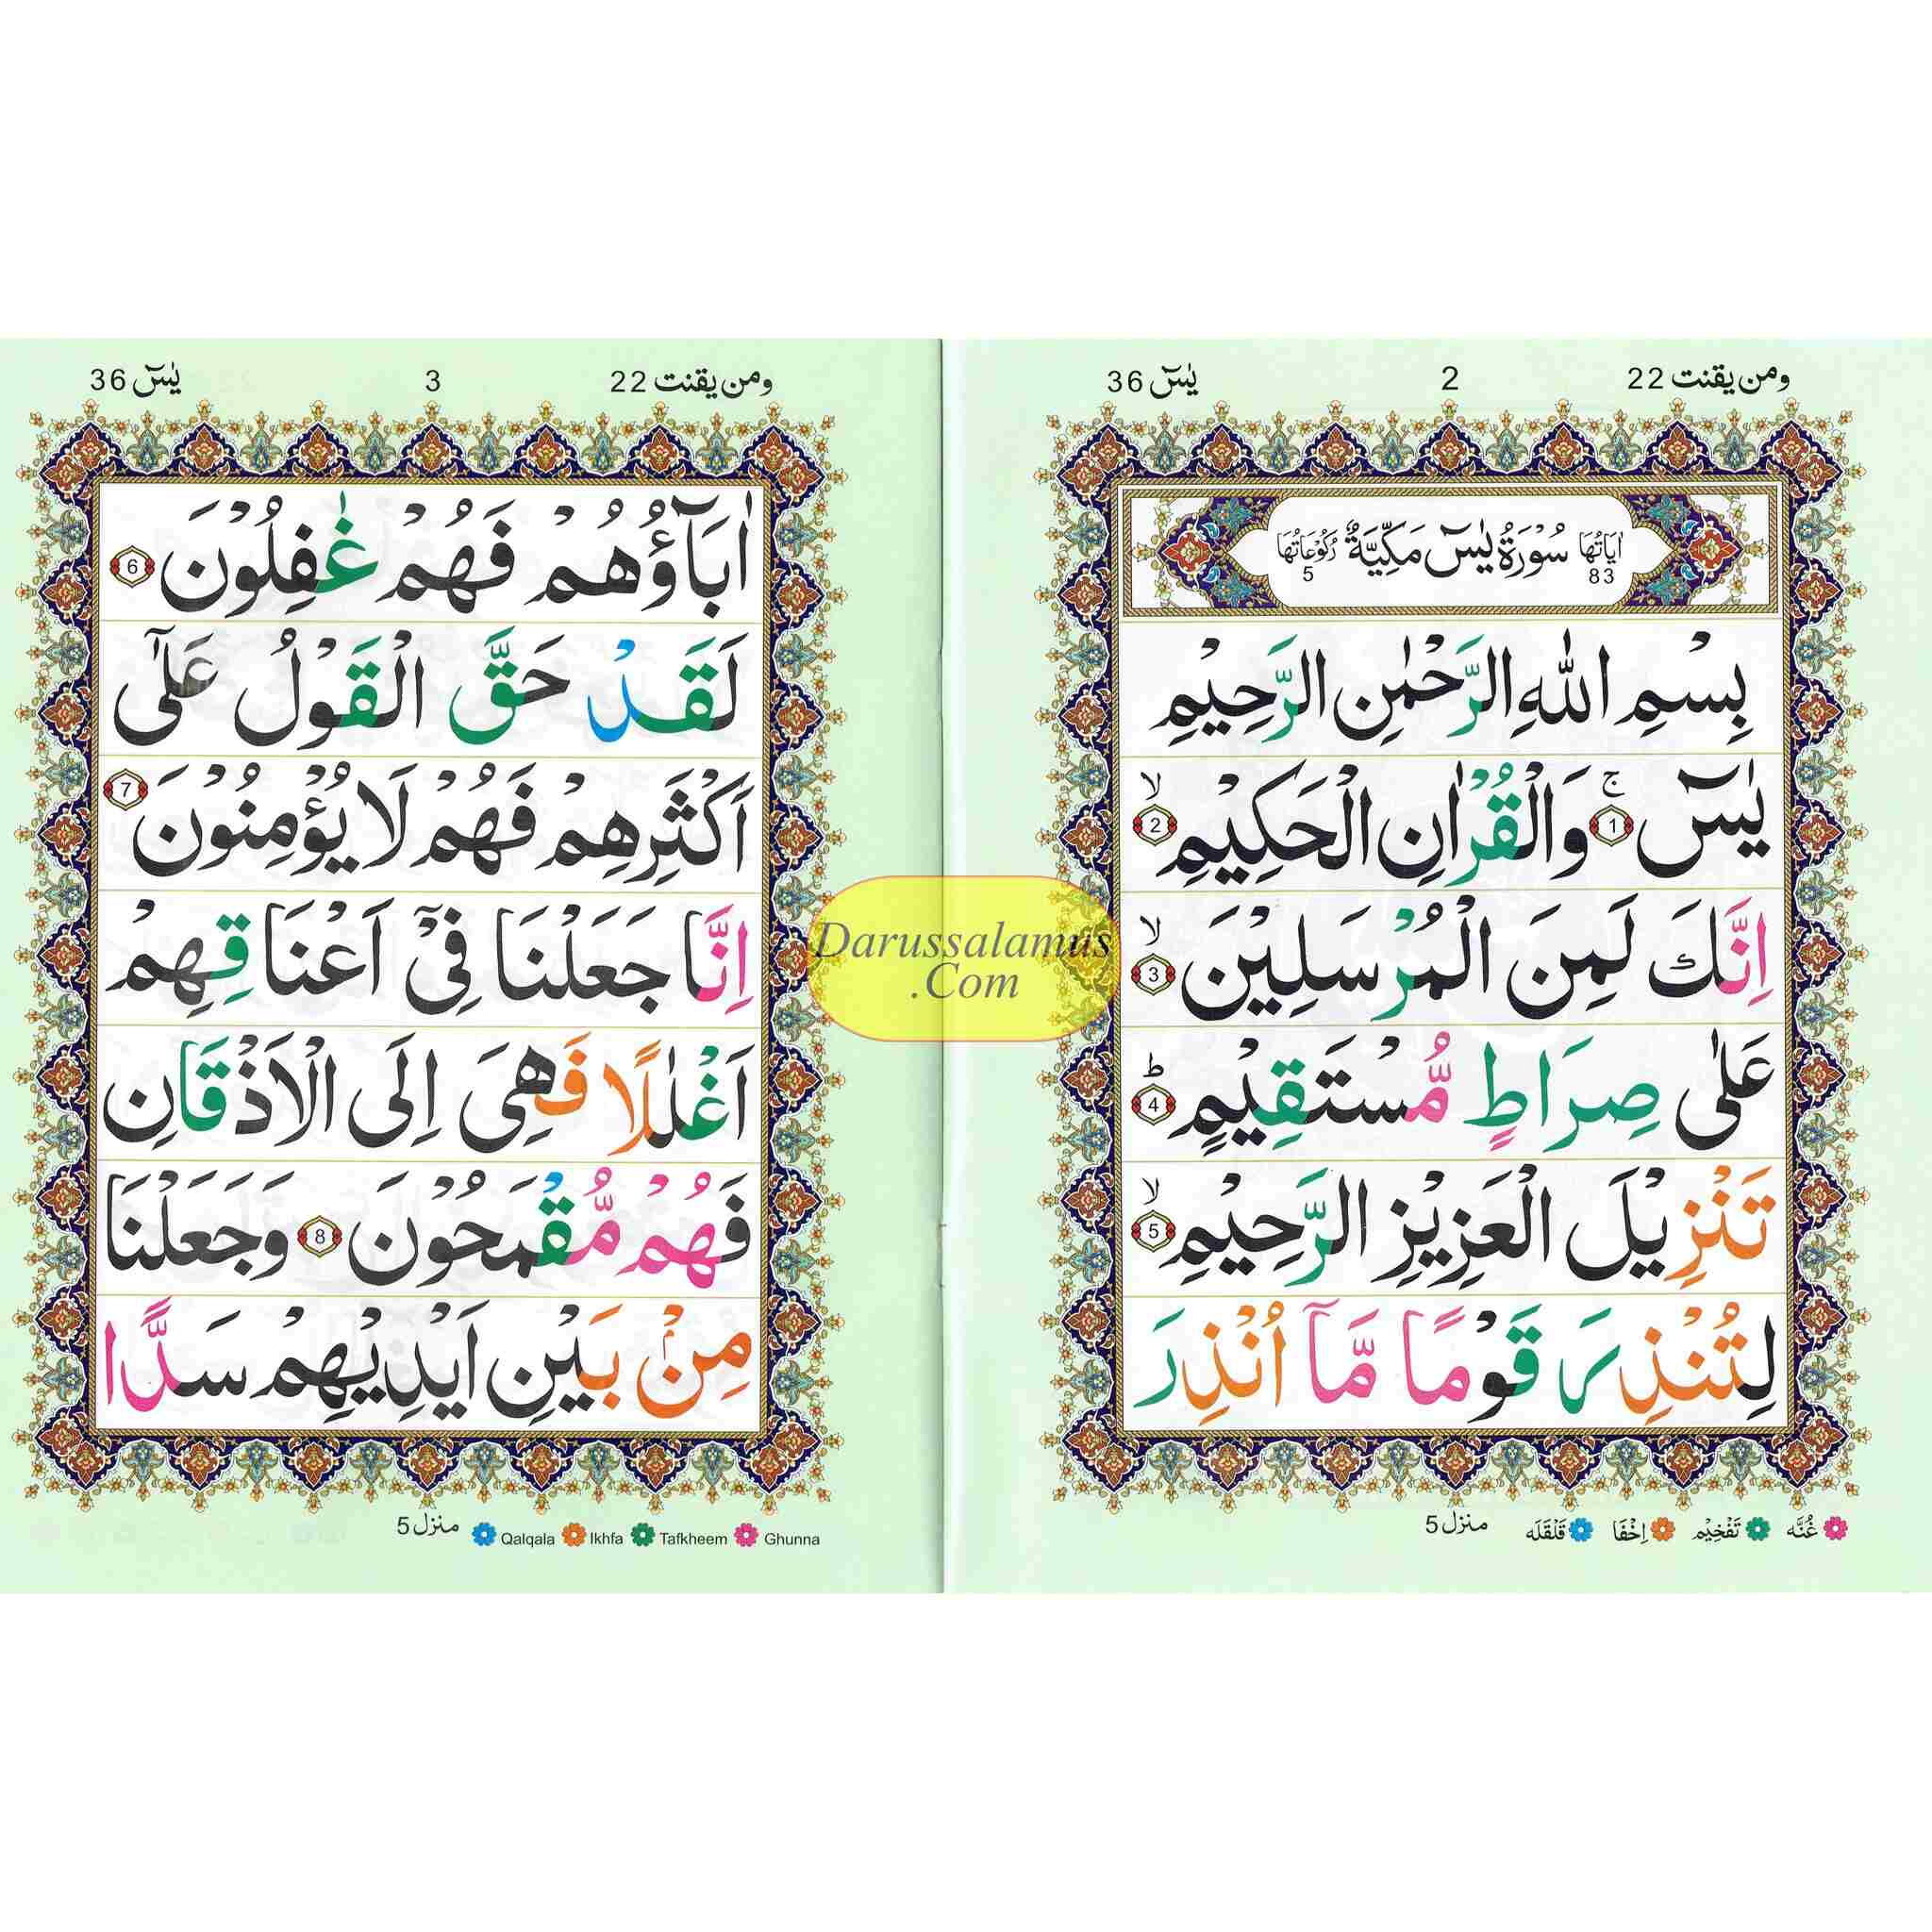 ومن يقنت 22
2
يٰسٓ 36
اٰيَاتُهَا 83 سُوْرَةُ يٰسٓ مَكِّيَّةٌ رُكُوْعَاتُهَا 5
بِسْمِ اللّٰهِ الرَّحْمٰنِ الرَّحِيْمِ
يٰسٓ ۚ 1 وَالْقُرْاٰنِ الْحَكِيْمِ ۙ 2
اِنَّكَ لَمِنَ الْمُرْسَلِيْنَ ۙ 3
عَلٰى صِرَاطٍ مُّسْتَقِيْمٍ ؕ 4
تَنْزِيْلَ الْعَزِيْزِ الرَّحِيْمِ ۙ 5
لِتُنْذِرَ قَوْمًا مَّآ اُنْذِرَ
غُنَّه تَفْخِيْم اِخْفَا قَلْقَلَه منزل 5
ومن يقنت 22
3
يٰسٓ 36
اٰبَآؤُهُمْ فَهُمْ غٰفِلُوْنَ 6
لَقَدْ حَقَّ الْقَوْلُ عَلٰٓى
اَكْثَرِهِمْ فَهُمْ لَا يُؤْمِنُوْنَ 7
اِنَّا جَعَلْنَا فِيْٓ اَعْنَاقِهِمْ
اَغْلٰلًا فَهِيَ اِلَى الْاَذْقَانِ
فَهُمْ مُّقْمَحُوْنَ 8 وَجَعَلْنَا
مِنْۢ بَيْنِ اَيْدِيْهِمْ سَدًّا
منزل 5 Qalqala Ikhfa Tafkheem Ghunna
Darussalamus
.Com